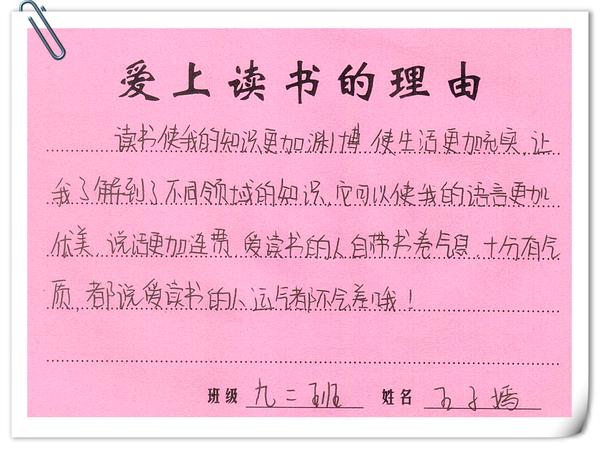 爱上读书的理由
读书使我的知识更加渊博,使生活更加充实,让
我了解到了不同领域的知识,它可以使我的语言更加
优美,说话更加连贯,爱读书的人自带书卷气息,十分有气
质,都说爱读书的人,运气都不会差哦!
班级 九二班 姓名 王子嫣